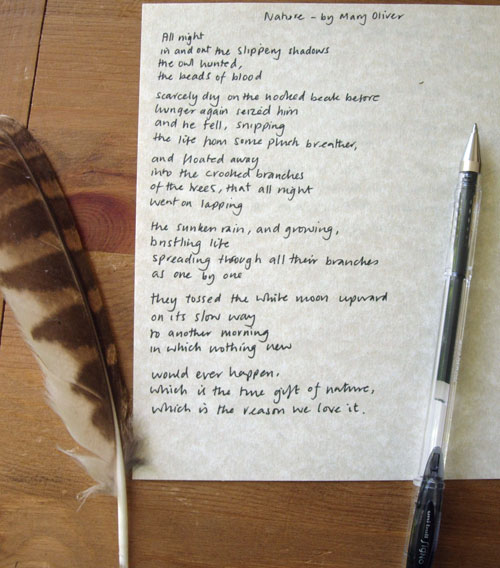 Nature - by Mary Oliver
All night
in and out the slippery shadows
the owl hunted,
the beads of blood
scarcely dry on the hooked beak before
hunger again seized him
and he fell, snipping
the life from some plush breather,
and floated away
into the crooked branches
of the trees, that all night
went on lapping
the sunken rain, and growing,
bristling life
spreading through all their branches
as one by one
they tossed the white moon upward
on its slow way
to another morning
in which nothing new
would ever happen,
which is the true gift of nature,
which is the reason we love it.
uni-ball Signo